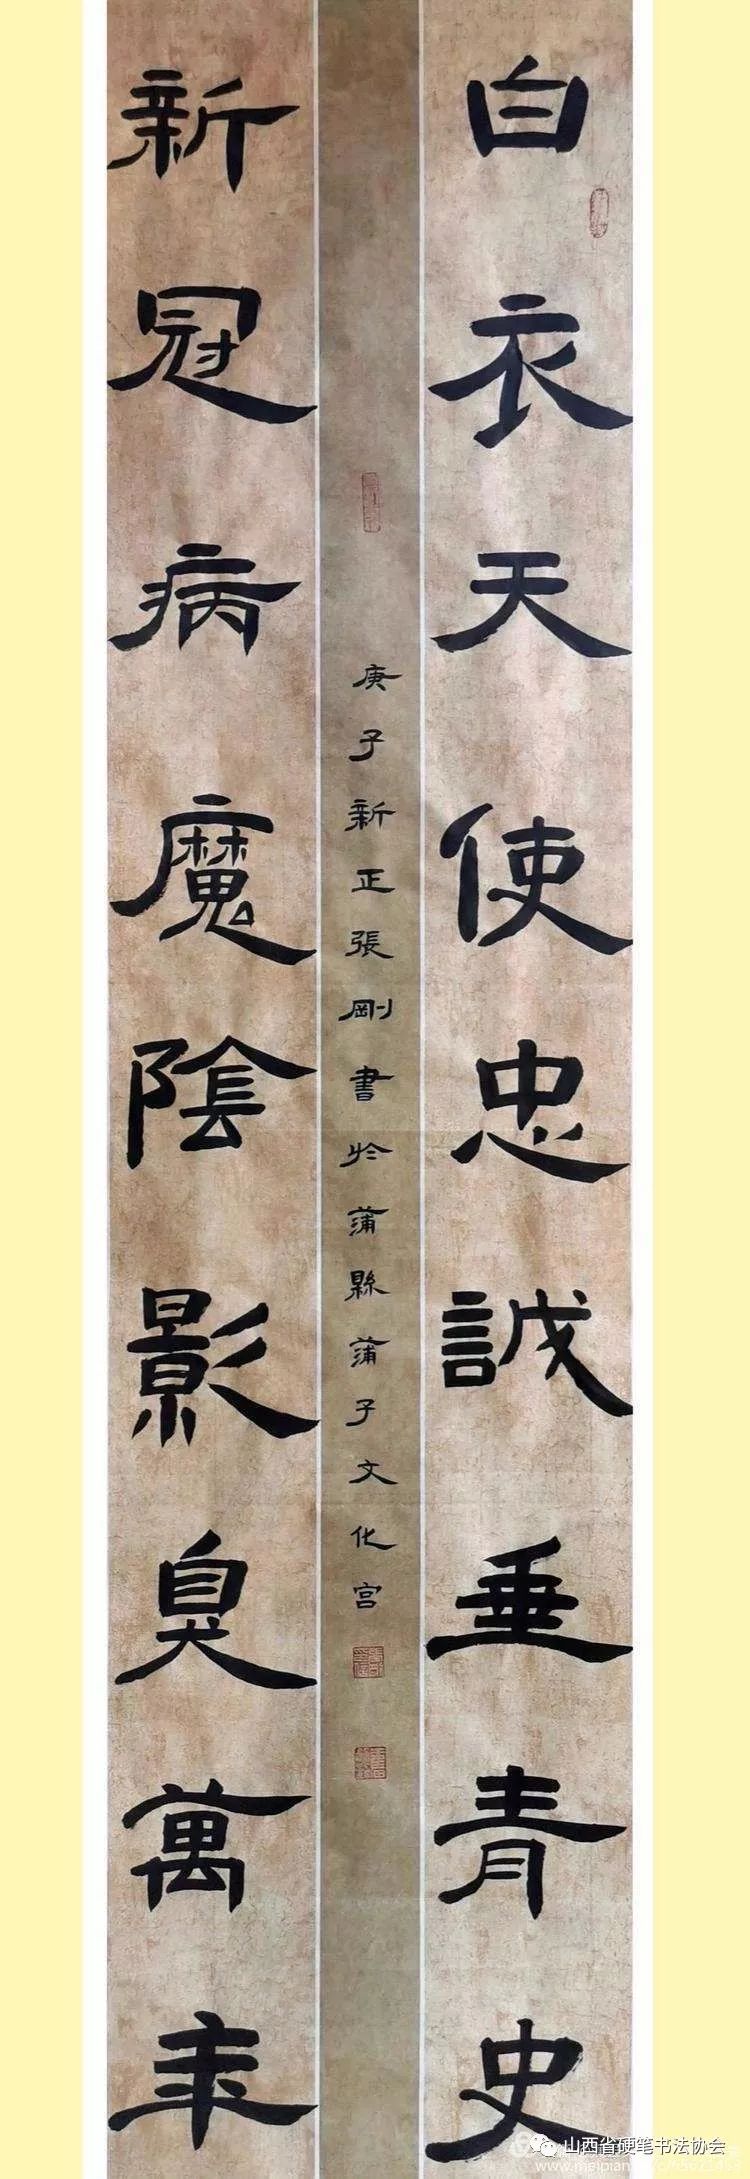 白衣天使忠誠垂青史
新冠病魔陰影臭萬年
庚子新正張剛書於蒲縣蒲子文化宮
山西省硬笔书法协会